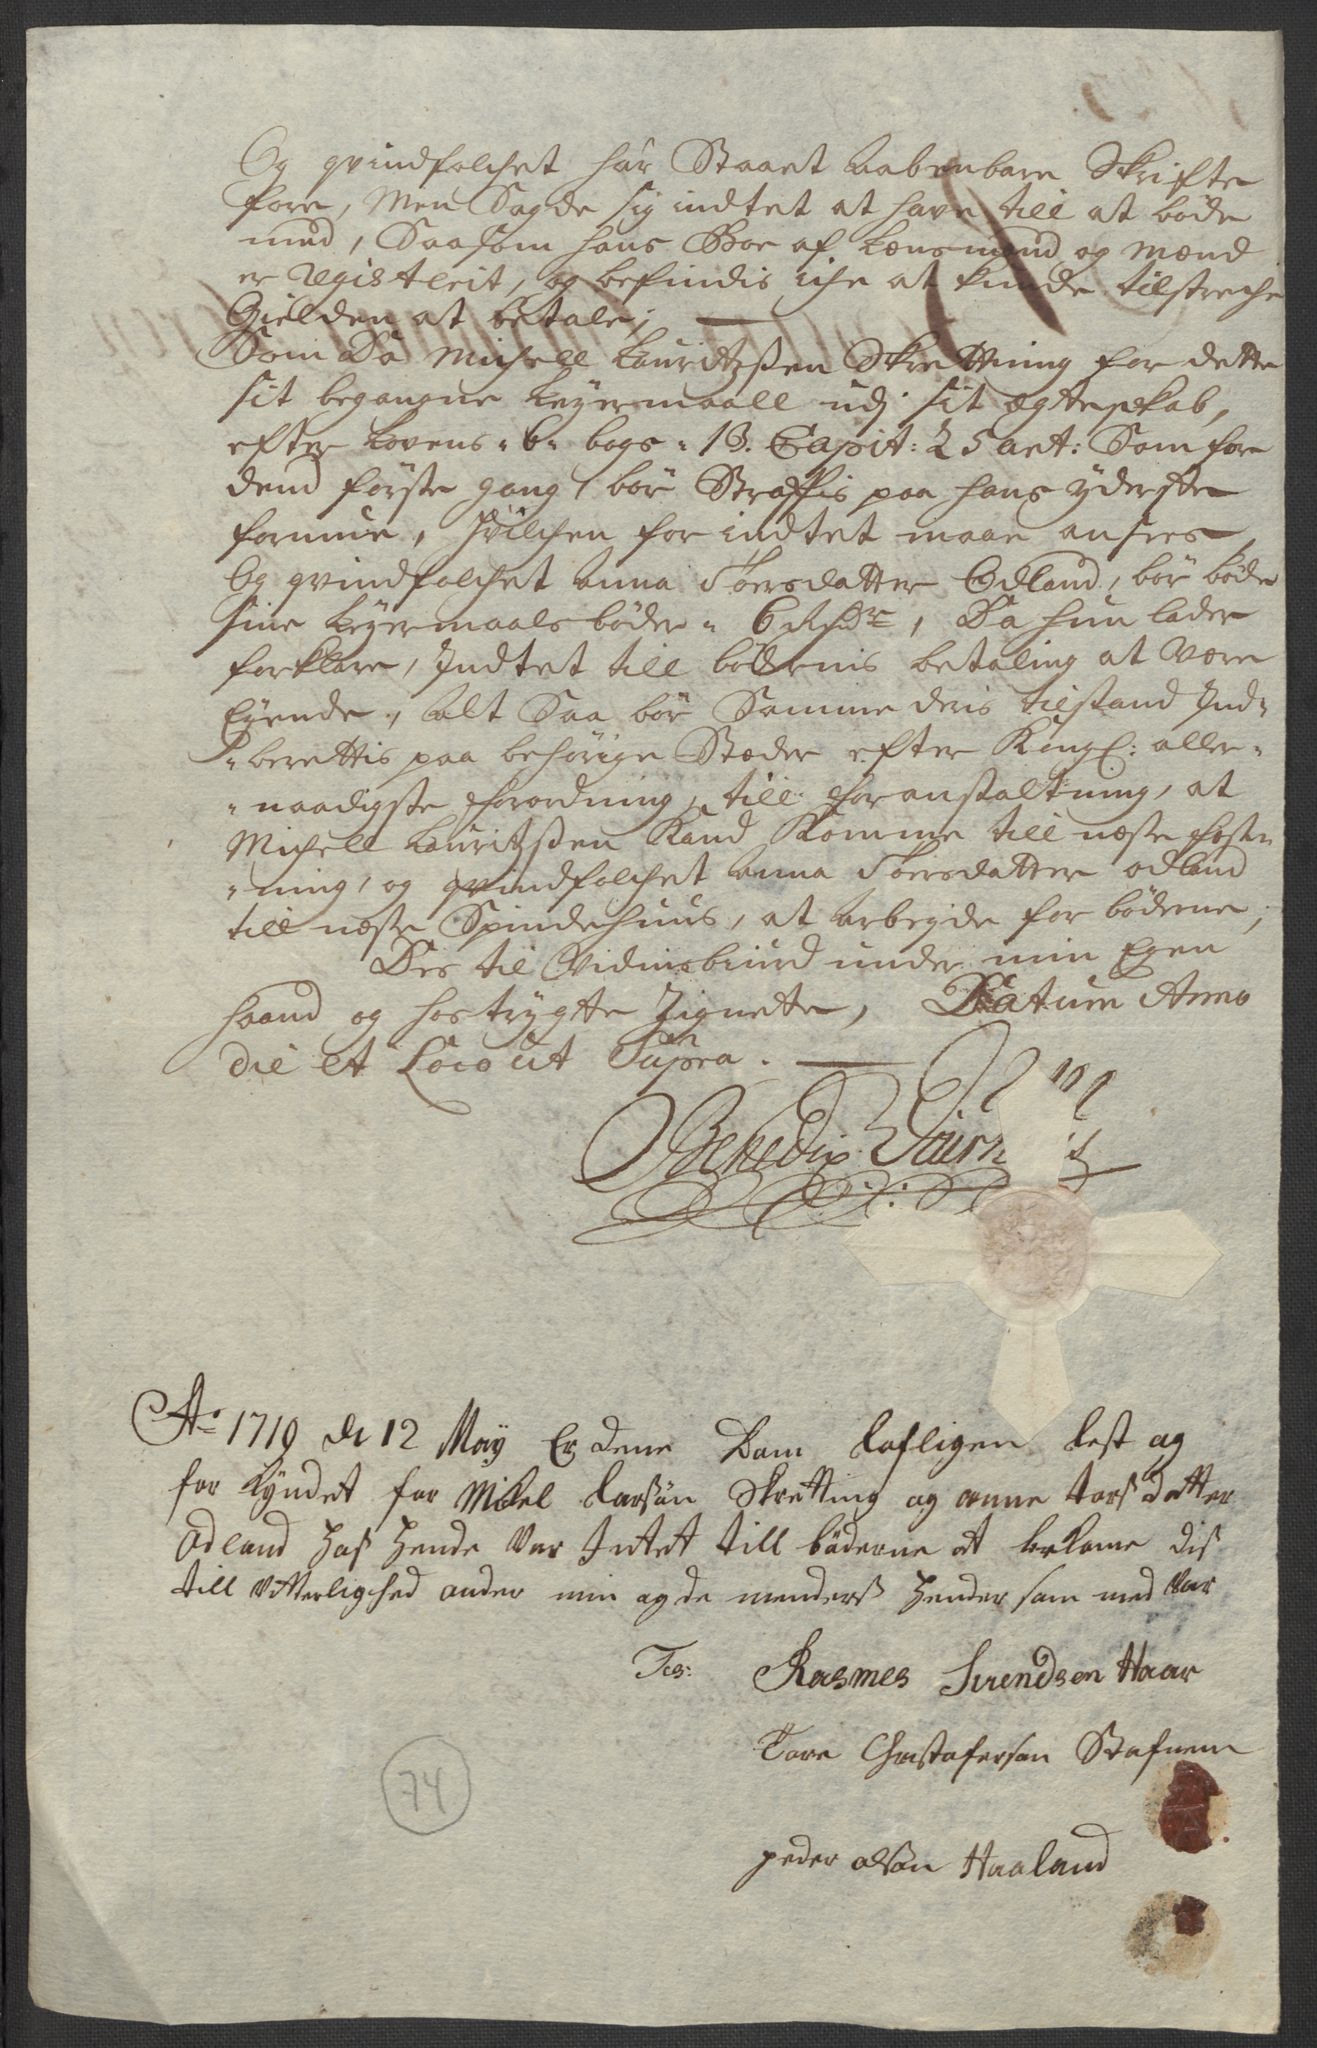 Og qvindfolchet har Staaet aabenbare Skrifte
fore, Men Sagde sig indtet at have till at bøde
med, Saasom hans Boe af Lensmand og Mænd
er Registreit, og befindis iche at kunde tilstreche
Gielden at betale;
Som Da Michell Lauritzsen Skrettning for dette
sit begangne Leyermaall udj sit ægteskab,
efter Lovens 6 bogs 13. Capit: 25 art: Som for
dend første gang bør Straffis paa hans yderste
formue, Hvilchen for indtet maae ansees,
Og qvindfolchet Anna Toersdatter Odland, bør bøde
sine Leyermaals bøder 6 Rdr, Da hun lader
forklare, Indtet till bødernis betaling at være
Eyende, alt Saa bør Samme deris tilstand Ind-
berettis paa behørige Stæder efter Kongl: aller-
naadigste forordning, till foranstaltning, at
Michell Lauritzsen Kand Komme till næste Fæst-
ning, og qvindfolchet Anna Toersdatter Odland
till næste Spindehuus, at arbeyde for bøderne,
Des til Vidnisbiurd under min Egen
haand og hostrygte Zignette, Datum Anno
die et Loco ut Supra.
Benedix
Ao 1719 d 12 Maÿ Er dene Dom lofligen lest og
for Kyndet for Mikel Larsøn Skretting og anne torsdatter
Odland Hoß Hende var Intet till bøderne at bekome diß
till Vitterlighed onder min og de menderß Hender som med var
Rasmes Svendsen Haar
Tore Christofersøn Stafnem
peder olsøn Haaland
74